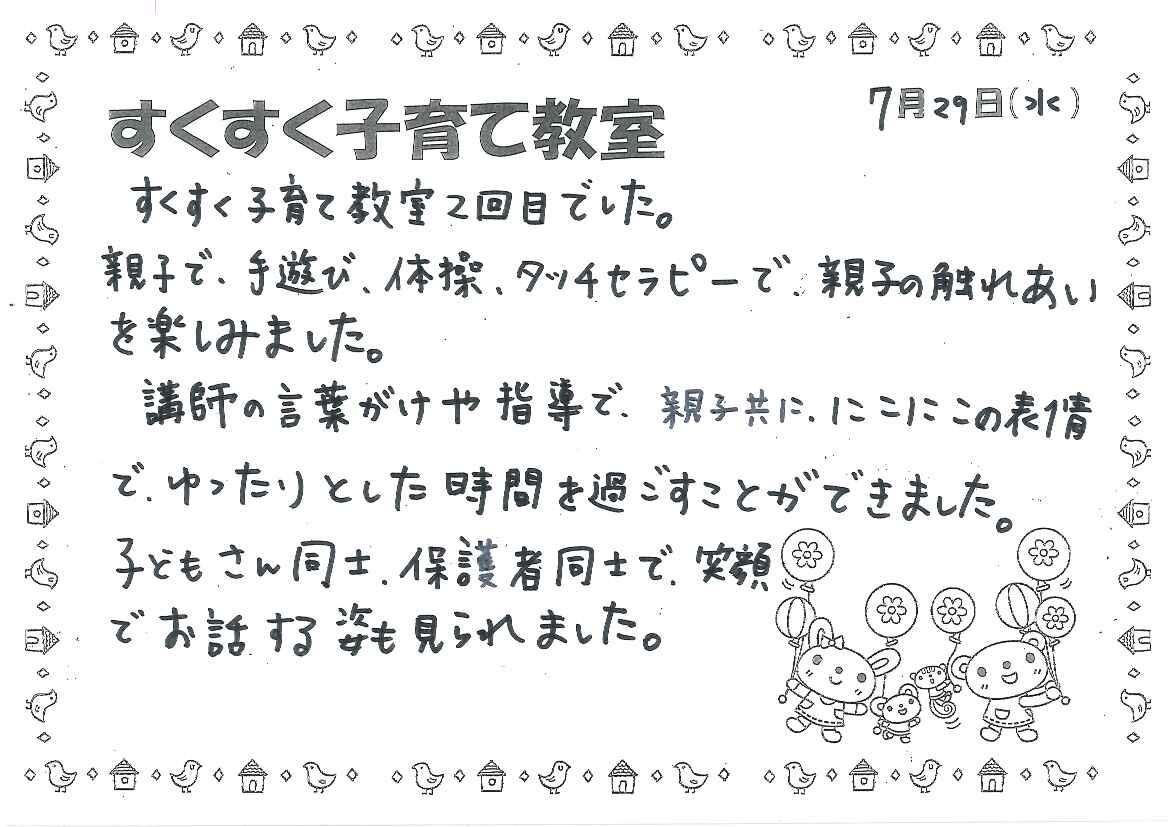 7月29日(水)
すくすく子育て教室
すくすく子育て教室2回目でした。
親子で、手遊び、体操、タッチセラピーで、親子の触れあい
を楽しみました。
講師の言葉がけや指導で、親子共に、にこにこの表情
で、ゆったりとした時間を過ごすことができました。
子どもさん同士、保護者同士で、笑顔
でお話する姿も見られました。